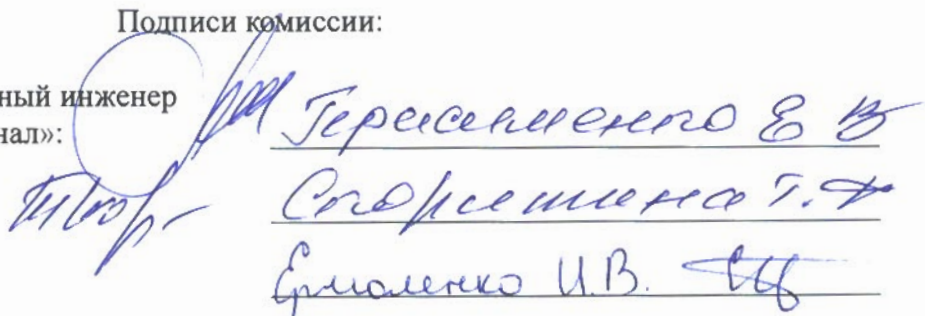 Подписи комиссии:
ный инженер
нал»:
Герасименко Е В
Т.
Ермоленко И.В.